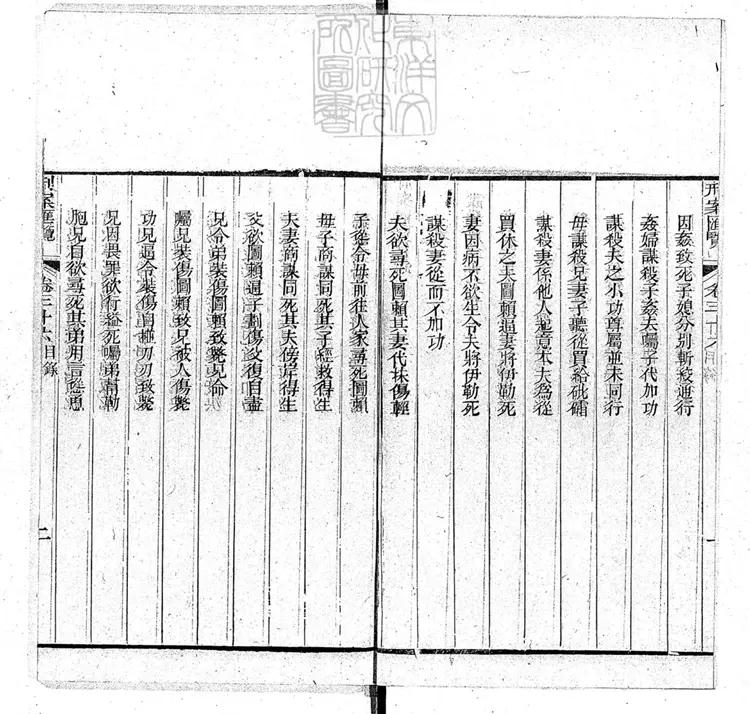 東洋文
化研究
所圖書
刑案匯覽
卷三十六目錄
一
因姦致死子媳分別斬絞通行
姦婦謀殺子姦夫囑子代加功
謀殺夫之小功尊屬並未同行
母謀殺兄妻子聽從買給砒礵
謀殺妻係他人起意本夫為從
買休之夫圖賴逼妻將伊勒死
妻因病不欲生令夫將伊勒死
謀殺妻從而不加功
夫欲尋死圖賴其妻代抹傷輕
子從令母前往人家尋死圖賴
母子商謀同死其子經救得生
夫妻商謀同死其夫傍岸得生
父欲圖賴逼子劃傷父復自盡
兄令弟裝傷圖賴致斃兄命
囑兄裝傷圖賴致兄被人傷斃
功兄逼令裝傷自碰刃致斃
兄因畏罪欲行縊死囑弟幫勒
胞兄自欲尋死其弟用言慫恿
刑案匯覽
卷三十六目錄
二